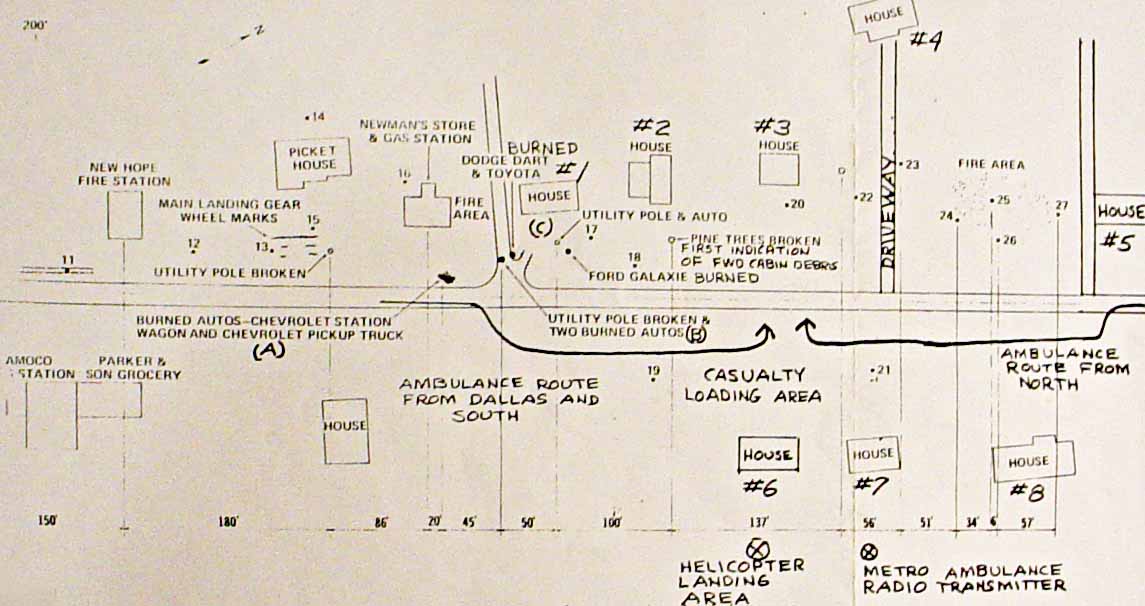 200'
N
HOUSE
#4
14
NEWMAN'S STORE
& GAS STATION
PICKET
HOUSE
NEW HOPE
FIRE STATION
MAIN LANDING GEAR
WHEEL MARKS
15
12
13
11
UTILITY POLE BROKEN
16
FIRE
AREA
BURNED
DODGE DART
& TOYOTA
#1
HOUSE
(C)
UTILITY POLE & AUTO
17
#2
HOUSE
#3
HOUSE
20
PINE TREES BROKEN
FIRST INDICATION
OF FWD CABIN DEBRIS
18
FORD GALAXIE BURNED
22
DRIVEWAY
23
FIRE AREA
24
25
26
27
HOUSE
#5
BURNED AUTOS-CHEVROLET STATION
WAGON AND CHEVROLET PICKUP TRUCK
(A)
UTILITY POLE BROKEN &
TWO BURNED AUTOS (B)
AMOCO
STATION
PARKER &
SON GROCERY
HOUSE
AMBULANCE ROUTE
FROM DALLAS AND
SOUTH
19
CASUALTY
LOADING AREA
21
AMBULANCE
ROUTE FROM
NORTH
HOUSE
#6
HOUSE
#7
HOUSE
#8
150' 180' 86' 20' 45' 50' 100' 137' 56' 51' 34' 6' 57'
HELICOPTER
LANDING
AREA
METRO AMBULANCE
RADIO TRANSMITTER